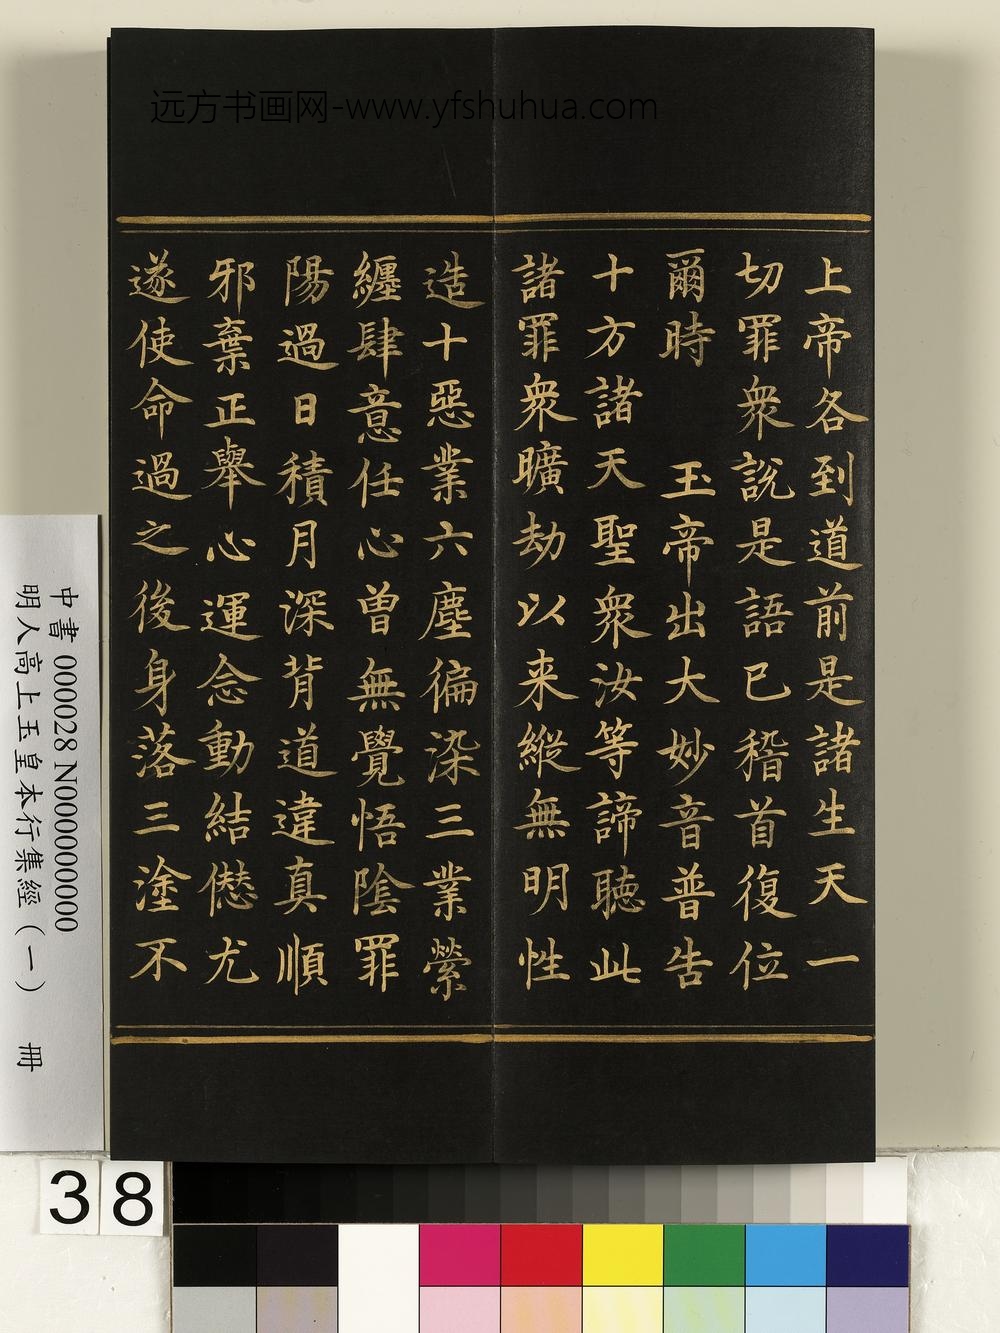 远方书画网-www.yfshuhua.com
上帝各到道前是諸生天一
切罪衆說是語已稽首復位
爾時　玉帝出大妙音普告
十方諸天聖衆汝等諦聽此
諸罪衆曠劫以来縱無明性
造十惡業六塵徧染三業縈
纏肆意任心曾無覺悟陰罪
陽過日積月深背道違真順
邪棄正舉心運念動結僽尤
遂使命過之後身落三塗不
中書 000028 N000000000
明人高上玉皇本行集經（一） 冊
38